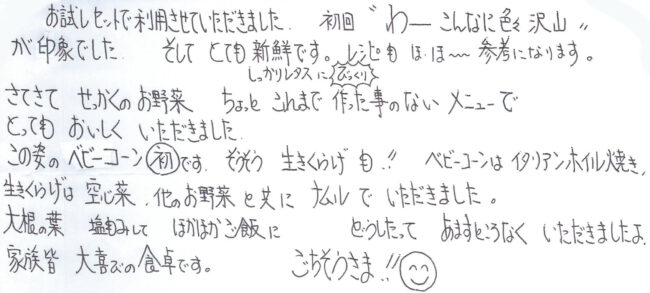 お試しセットで利用させていただきました。 初回 〝わーこんなに色々沢山〟
が印象でした。 そして とても新鮮です。レシピも ほ・ほ〜 参考になります。
しっかりレタスに びっくり
さてさて せっかくのお野菜 ちょっと これまで 作った事のない メニューで
とっても おいしく いただきました。
この姿の ベビーコーン 初です。 そうそう 生きくらげ も!! ベビーコーンは イタリアンホイル焼き、
生きくらげは 空心菜、他のお野菜 と共に ナムル で いただきました。
大根の葉 塩もみして ほかほか ご飯に どうしたって あますところなく いただきましたよ。
家族皆 大喜びの 食卓です。 ごちそうさま!!